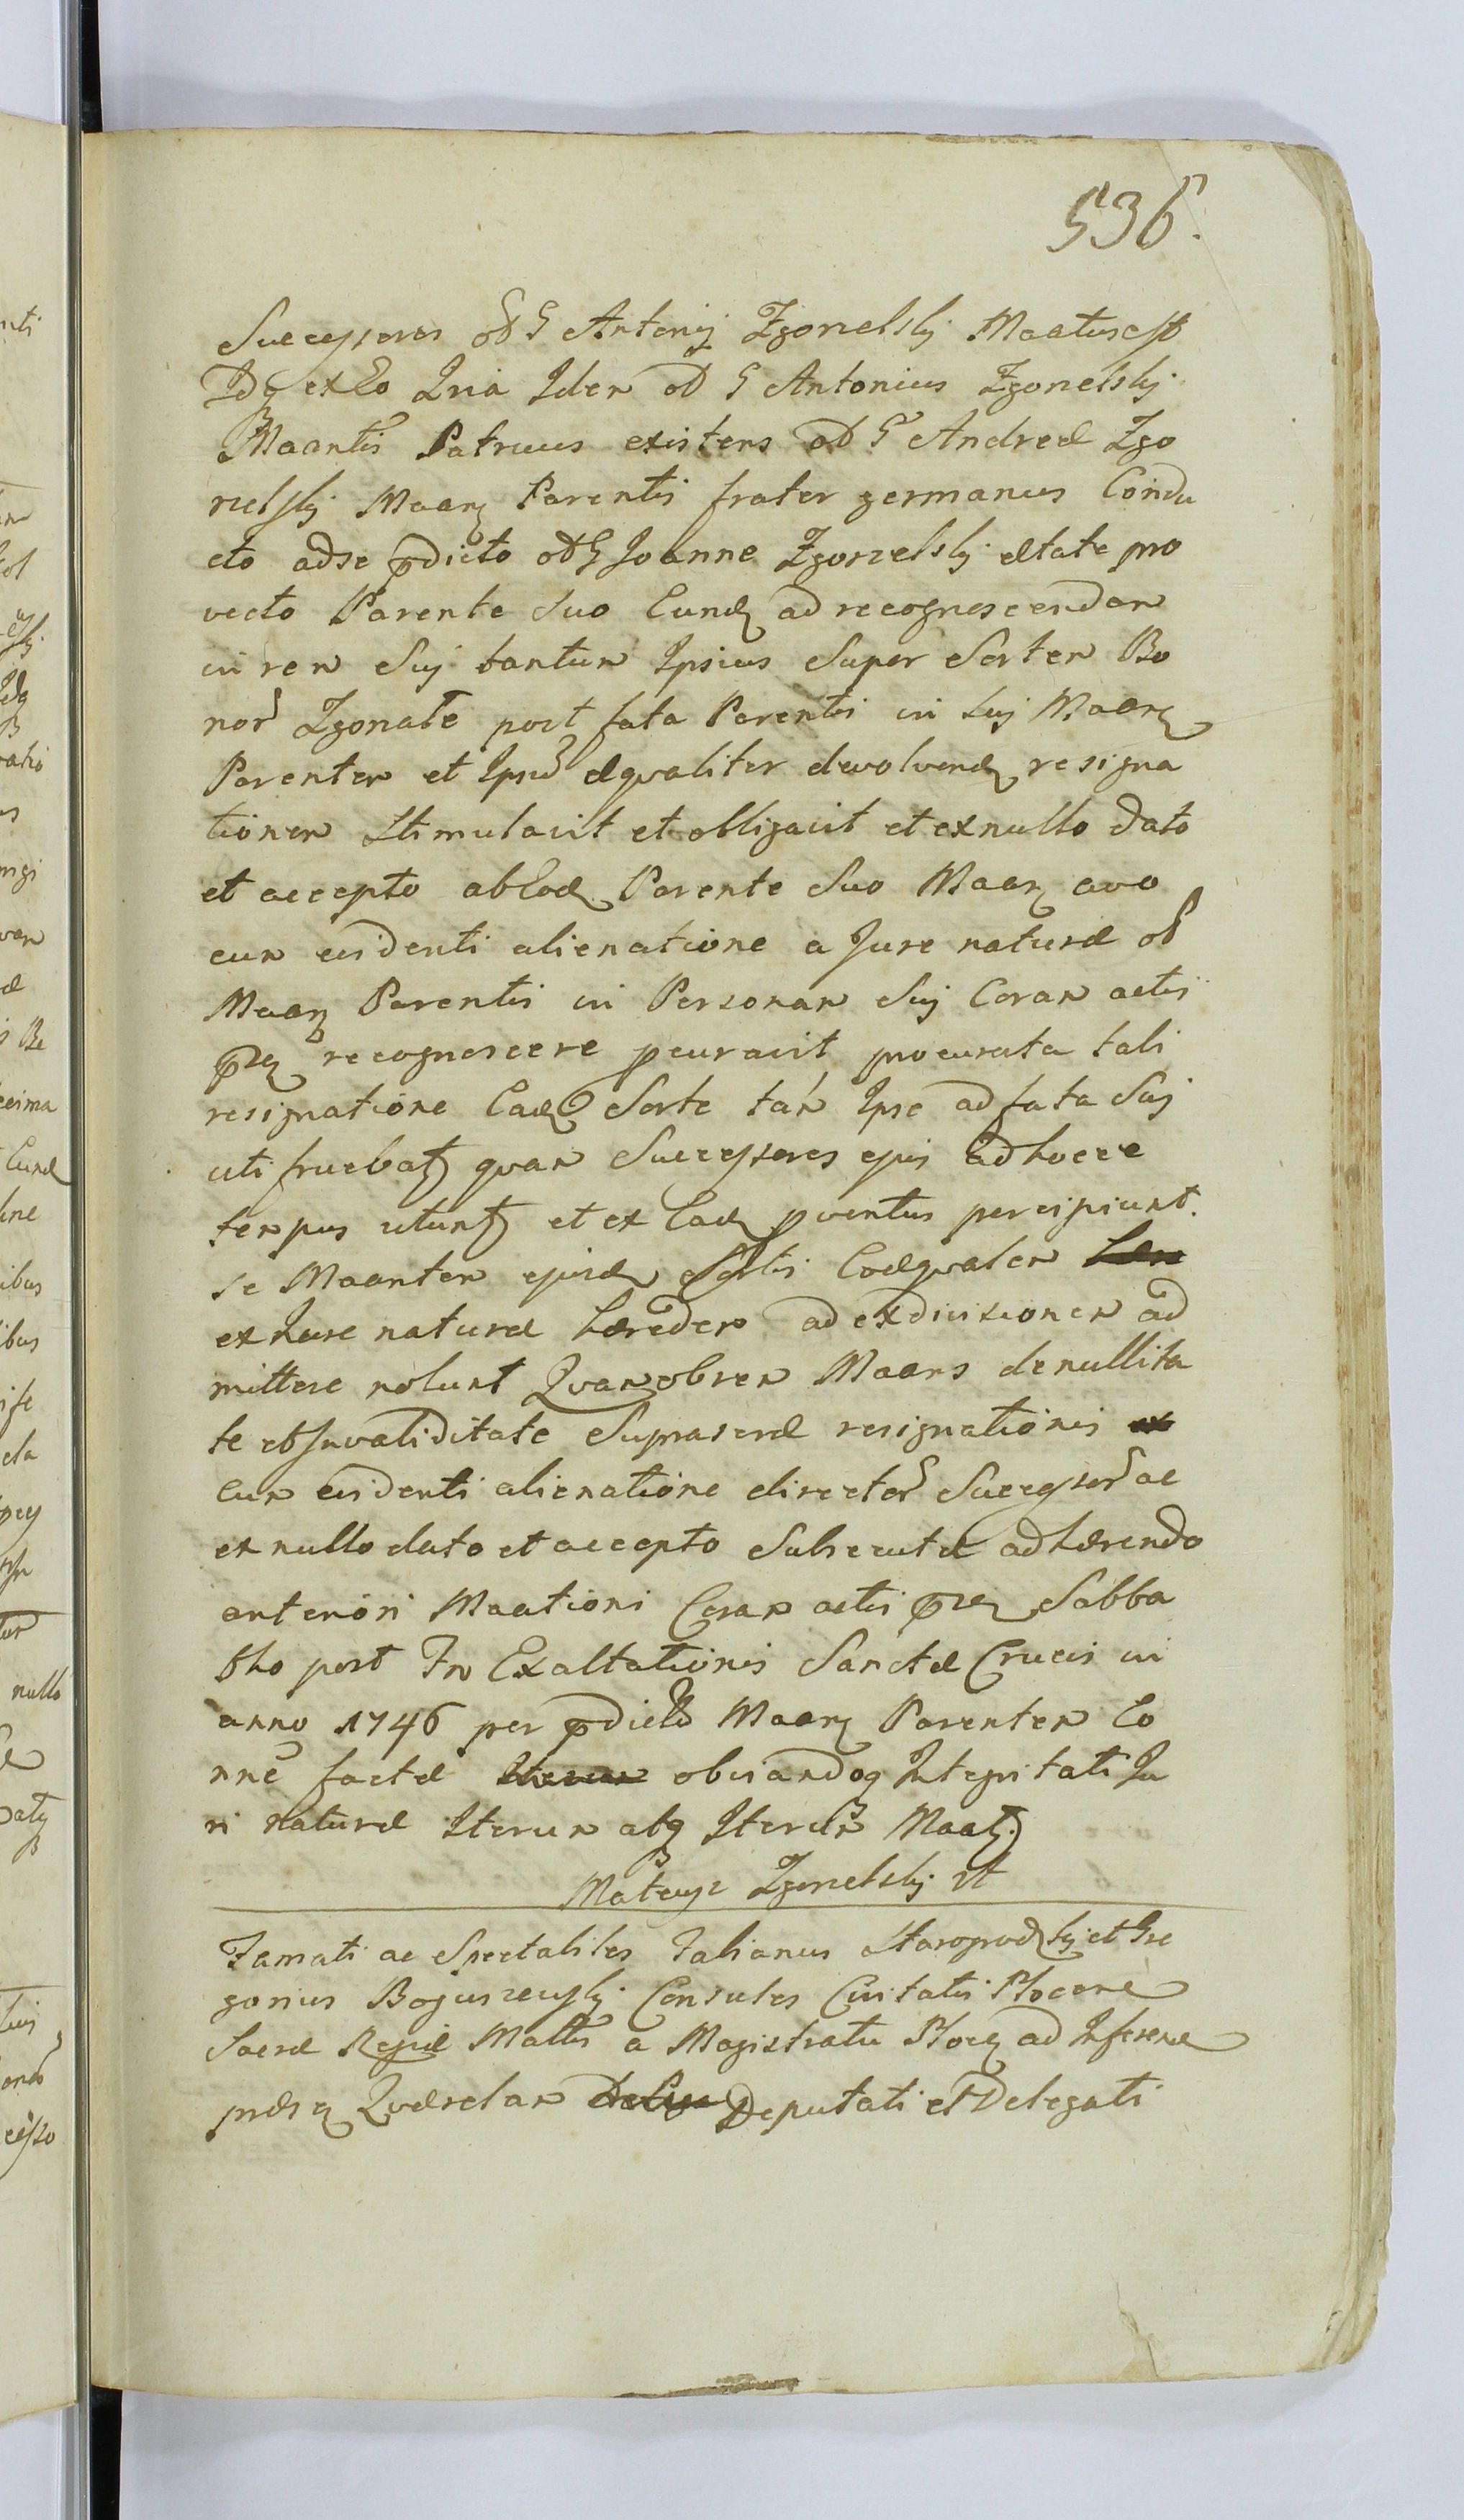 536.
Successores oł G Antonij Zgorzelskj Maatus est
Idq exEo Qvia Idem oł G Antonius Zgorzelskj
Maantis Patruus existens oł G Andreæ Zgo
rzelskj Maan Parentis frater germanus Condu
cto adse pdicto oł G Joanne Zgorzelskj ætate pro
vecto Parente Suo Eund ad recognoscendam
in rem Suj tantum Ipsius Super Sortem Bo
nor Zgonate post fata Parentis in Suj Maan
Parentem et Ipsu æqvaliter devolvend resigna
tionem Stimulavit et obligavit et ex nullo dato
et accepto abEod Parente Suo Maan avo
cum evidenti alienatione a Jure naturæ oł
Maan Parentis in Personam Suj Coram actis
pñ recognoscere pcuravit procurata tali
resignatione Ead Sorte tam Ipse ad fata Suj
uti fruebat qvam Successores ejus adhocce
tempus utunt et ex Ead pventus percipiunt.
se Maantem ejusd Sortis Coæqvalem
ex Jure naturæ hæredem ad exdivisionem ad
mittere nolunt Qvamobrem Maans de nullita
te et Invaliditate Suprascræ resignationis
Cum evidenti alienatione director Successor ac
ex nullo dato et accepto Subsecutæ adhærendo
anteriori Maationi Coram actis pñ Sabba
tho post Fm Exaltationis Sanctæ Crucis in
anno 1746 per pdictu Maan Parentem Co
nne factæ obviandoq Integritati Ju
ri naturæ Iterum atq Iterum Maat.
Mateusz Zgorzelskj
Famati ac Spectabiles Fabianus Starogrodzkj et Gre
gorius Boguszewskj Consules Civitatis Plocens
Sacræ Regiæ Mattis a Magistratu Plocen ad Inferend
præsen Qværelam Deputati et Delegati